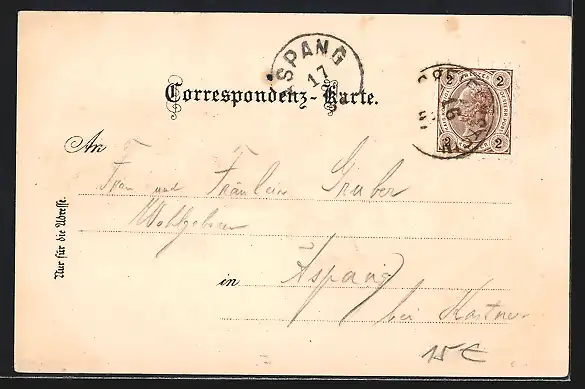 ASPANG
17
Correspondenz-Karte.
2 2
2 2
An
Frau und Fräulein Gruber
Wohlgeboren
Nur für die Adresse.
in Aspang
bei Kastner
15 €